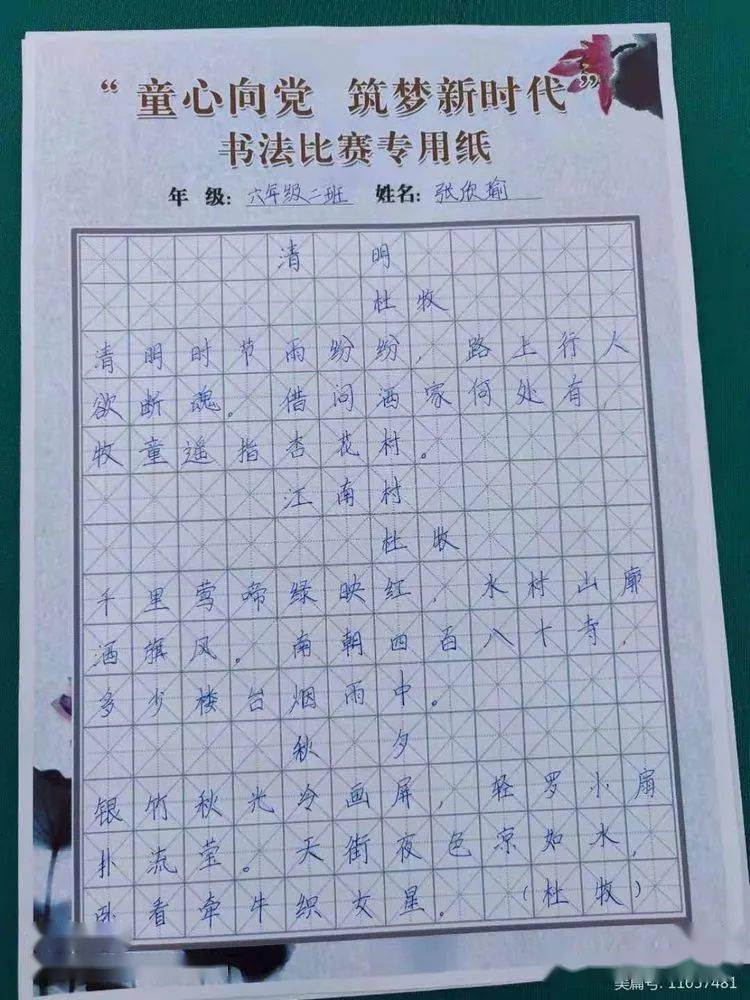 “童心向党 筑梦新时代”
书法比赛专用纸
年 级：六年级二班 姓名：张欣瑜
清 明
杜牧
清明时节雨纷纷，路上行人
欲断魂。借问酒家何处有，
牧童遥指杏花村。
江南村
杜牧
千里莺啼绿映红，水村山廓
酒旗风。南朝四百八十寺，
多少楼台烟雨中。
秋 夕
银竹秋光冷画屏，轻罗小扇
扑流莹。天街夜色凉如水，
卧看牵牛织女星。（杜牧）
美篇号: 11057481